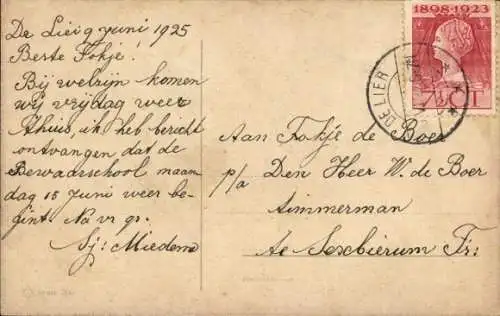 De Lier 9 juni 1925
Beste Fokje!
Bij welzijn komen
wij vrijdag weer
thuis, ik heb bericht
ontvangen dat de
Bewaarschool maan
dag 15 Juni weer be-
gint. Na vr gr.
Sj: Miedema
1898-1923
DE LIER
Aan Fokje de Boer
p/a Den Heer W. de Boer
timmerman
te Sexbierum Fr: